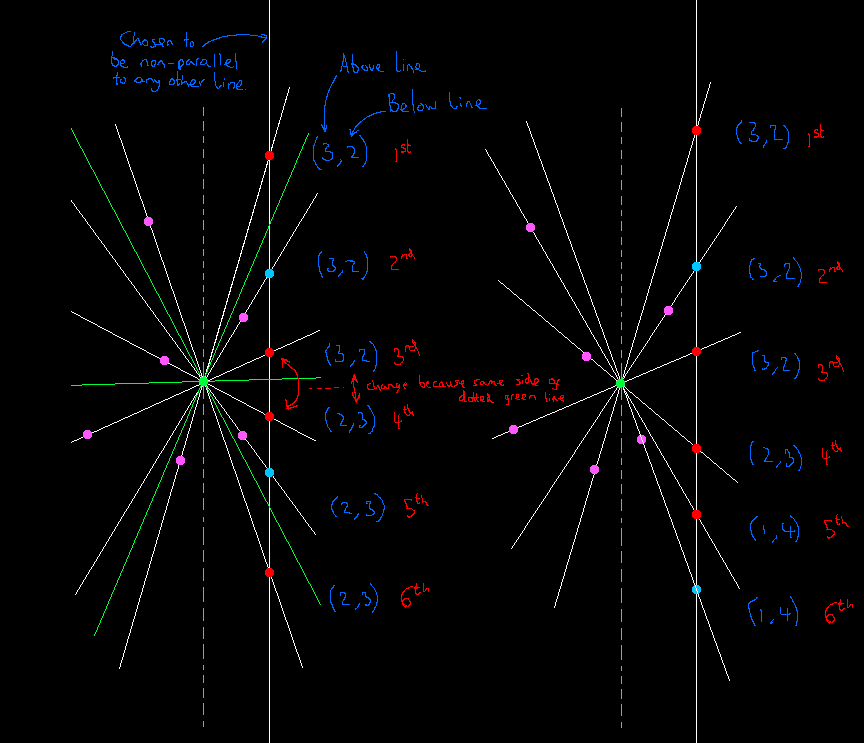 Chosen to
be non-parallel
to any other line.
Above line
Below line
(3,2) 1st
(3,2) 2nd
(3,2) 3rd
change because same side of
dotted green line
(2,3) 4th
(2,3) 5th
(2,3) 6th
(3,2) 1st
(3,2) 2nd
(3,2) 3rd
(2,3) 4th
(1,4) 5th
(1,4) 6th